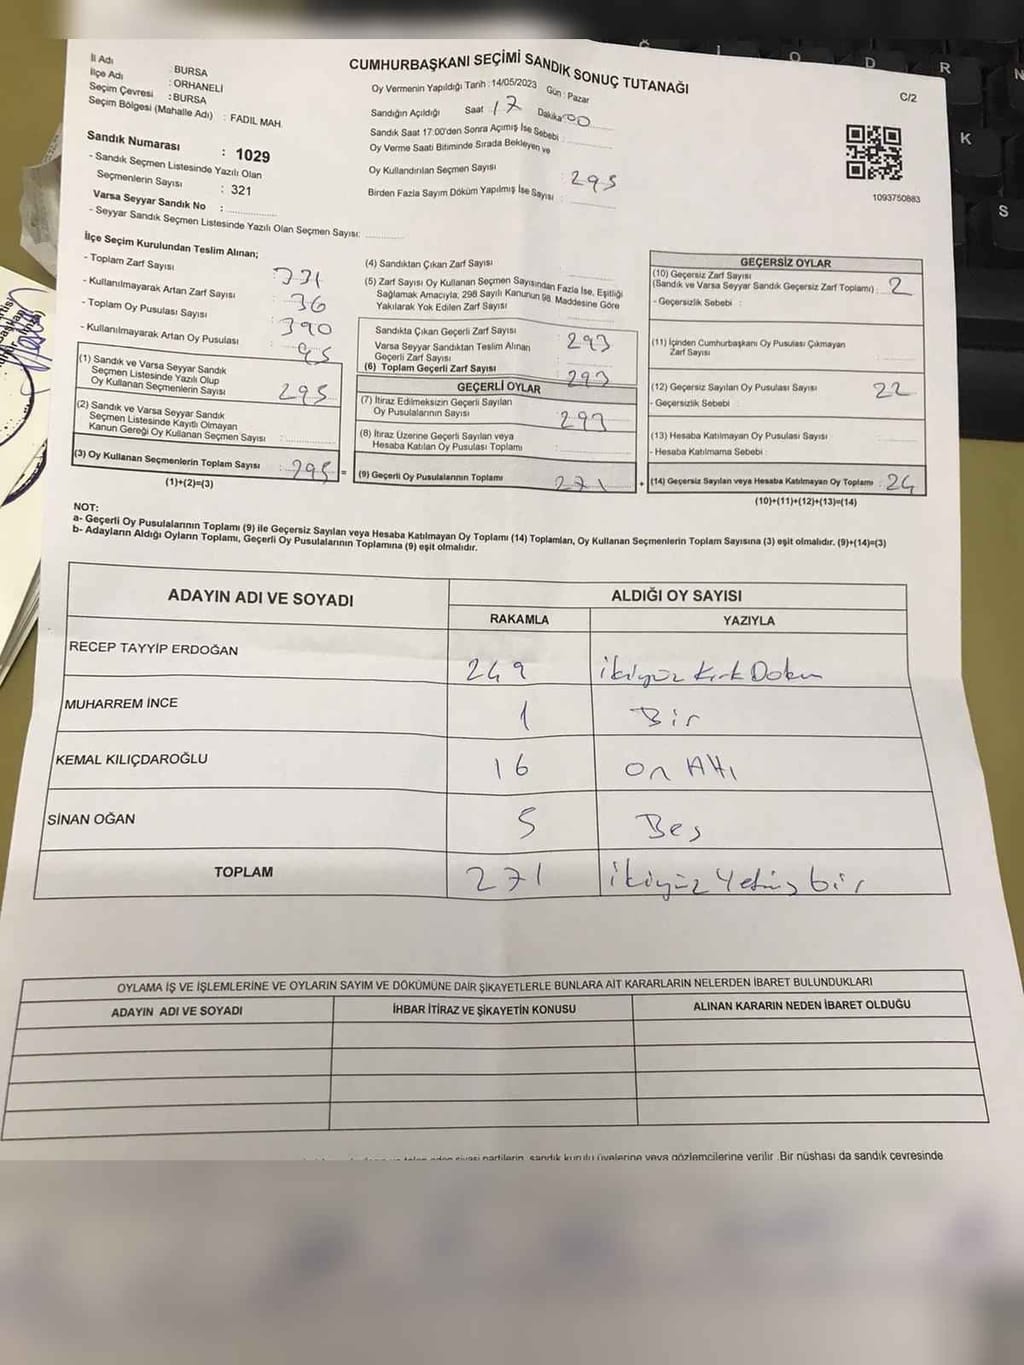 CUMHURBAŞKANI SEÇİMİ SANDIK SONUÇ TUTANAĞI
C/2
İl Adı : BURSA
İlçe Adı : ORHANELİ
Seçim Çevresi : BURSA
Seçim Bölgesi (Mahalle Adı) : FADIL MAH.
Sandık Numarası : 1029
- Sandık Seçmen Listesinde Yazılı Olan
Seçmenlerin Sayısı : 321
Varsa Seyyar Sandık No :
- Seyyar Sandık Seçmen Listesinde Yazılı Olan Seçmen Sayısı:
Oy Vermenin Yapıldığı Tarih : 14/05/2023 Gün : Pazar
Sandığın Açıldığı Saat 17 Dakika 00
Sandık Saat 17:00'den Sonra Açımış İse Sebebi :
Oy Verme Saati Bitiminde Sırada Bekleyen ve
Oy Kullandırılan Seçmen Sayısı : 295
Birden Fazla Sayım Döküm Yapılmış İse Sayısı :
1093750883
İlçe Seçim Kurulundan Teslim Alınan;
- Toplam Zarf Sayısı : 331
- Kullanılmayarak Artan Zarf Sayısı : 36
- Toplam Oy Pusulası Sayısı : 390
- Kullanılmayarak Artan Oy Pusulası : 95
(1) Sandık ve Varsa Seyyar Sandık
Seçmen Listesinde Yazılı Olup
Oy Kullanan Seçmenlerin Sayısı : 295
(2) Sandık ve Varsa Seyyar Sandık
Seçmen Listesinde Kayıtlı Olmayan
Kanun Gereği Oy Kullanan Seçmen Sayısı :
(3) Oy Kullanan Seçmenlerin Toplam Sayısı : 295 =
(1)+(2)=(3)
(4) Sandıktan Çıkan Zarf Sayısı :
(5) Zarf Sayısı Oy Kullanan Seçmen Sayısından Fazla İse, Eşitliği
Sağlamak Amacıyla; 298 Sayılı Kanunun 98. Maddesine Göre
Yakılarak Yok Edilen Zarf Sayısı :
Sandıkta Çıkan Geçerli Zarf Sayısı : 293
Varsa Seyyar Sandıktan Teslim Alınan
Geçerli Zarf Sayısı :
(6) Toplam Geçerli Zarf Sayısı : 293
GEÇERLİ OYLAR
(7) İtiraz Edilmeksizin Geçerli Sayılan
Oy Pusulalarının Sayısı : 293
(8) İtiraz Üzerine Geçerli Sayılan veya
Hesaba Katılan Oy Pusulası Toplamı :
(9) Geçerli Oy Pusulalarının Toplamı : 271 +
GEÇERSİZ OYLAR
(10) Geçersiz Zarf Sayısı
(Sandık ve Varsa Seyyar Sandık Geçersiz Zarf Toplamı) : 2
- Geçersizlik Sebebi :
(11) İçinden Cumhurbaşkanı Oy Pusulası Çıkmayan
Zarf Sayısı :
(12) Geçersiz Sayılan Oy Pusulası Sayısı : 22
- Geçersizlik Sebebi :
(13) Hesaba Katılmayan Oy Pusulası Sayısı :
- Hesaba Katılmama Sebebi :
(14) Geçersiz Sayılan veya Hesaba Katılmayan Oy Toplamı : 24
(10)+(11)+(12)+(13)=(14)
NOT:
a- Geçerli Oy Pusulalarının Toplamı (9) ile Geçersiz Sayılan veya Hesaba Katılmayan Oy Toplamı (14) Toplamları, Oy Kullanan Seçmenlerin Toplam Sayısına (3) eşit olmalıdır. (9)+(14)=(3)
b- Adayların Aldığı Oyların Toplamı, Geçerli Oy Pusulalarının Toplamına (9) eşit olmalıdır.
ADAYIN ADI VE SOYADI ALDIĞI OY SAYISI
RAKAMLA YAZIYLA
RECEP TAYYİP ERDOĞAN 249 ikiyüz kırk Dokuz
MUHARREM İNCE 1 Bir
KEMAL KILIÇDAROĞLU 16 on Altı
SİNAN OĞAN 5 Beş
TOPLAM 271 ikiyüz Yetmiş bir
OYLAMA İŞ VE İŞLEMLERİNE VE OYLARIN SAYIM VE DÖKÜMÜNE DAİR ŞİKAYETLERLE BUNLARA AİT KARARLARIN NELERDEN İBARET BULUNDUKLARI
ADAYIN ADI VE SOYADI İHBAR İTİRAZ VE ŞİKAYETİN KONUSU ALINAN KARARIN NEDEN İBARET OLDUĞU
siyasi partilerin, sandık kurulu üyelerine veya gözlemcilerine verilir .Bir nüshası da sandık çevresinde